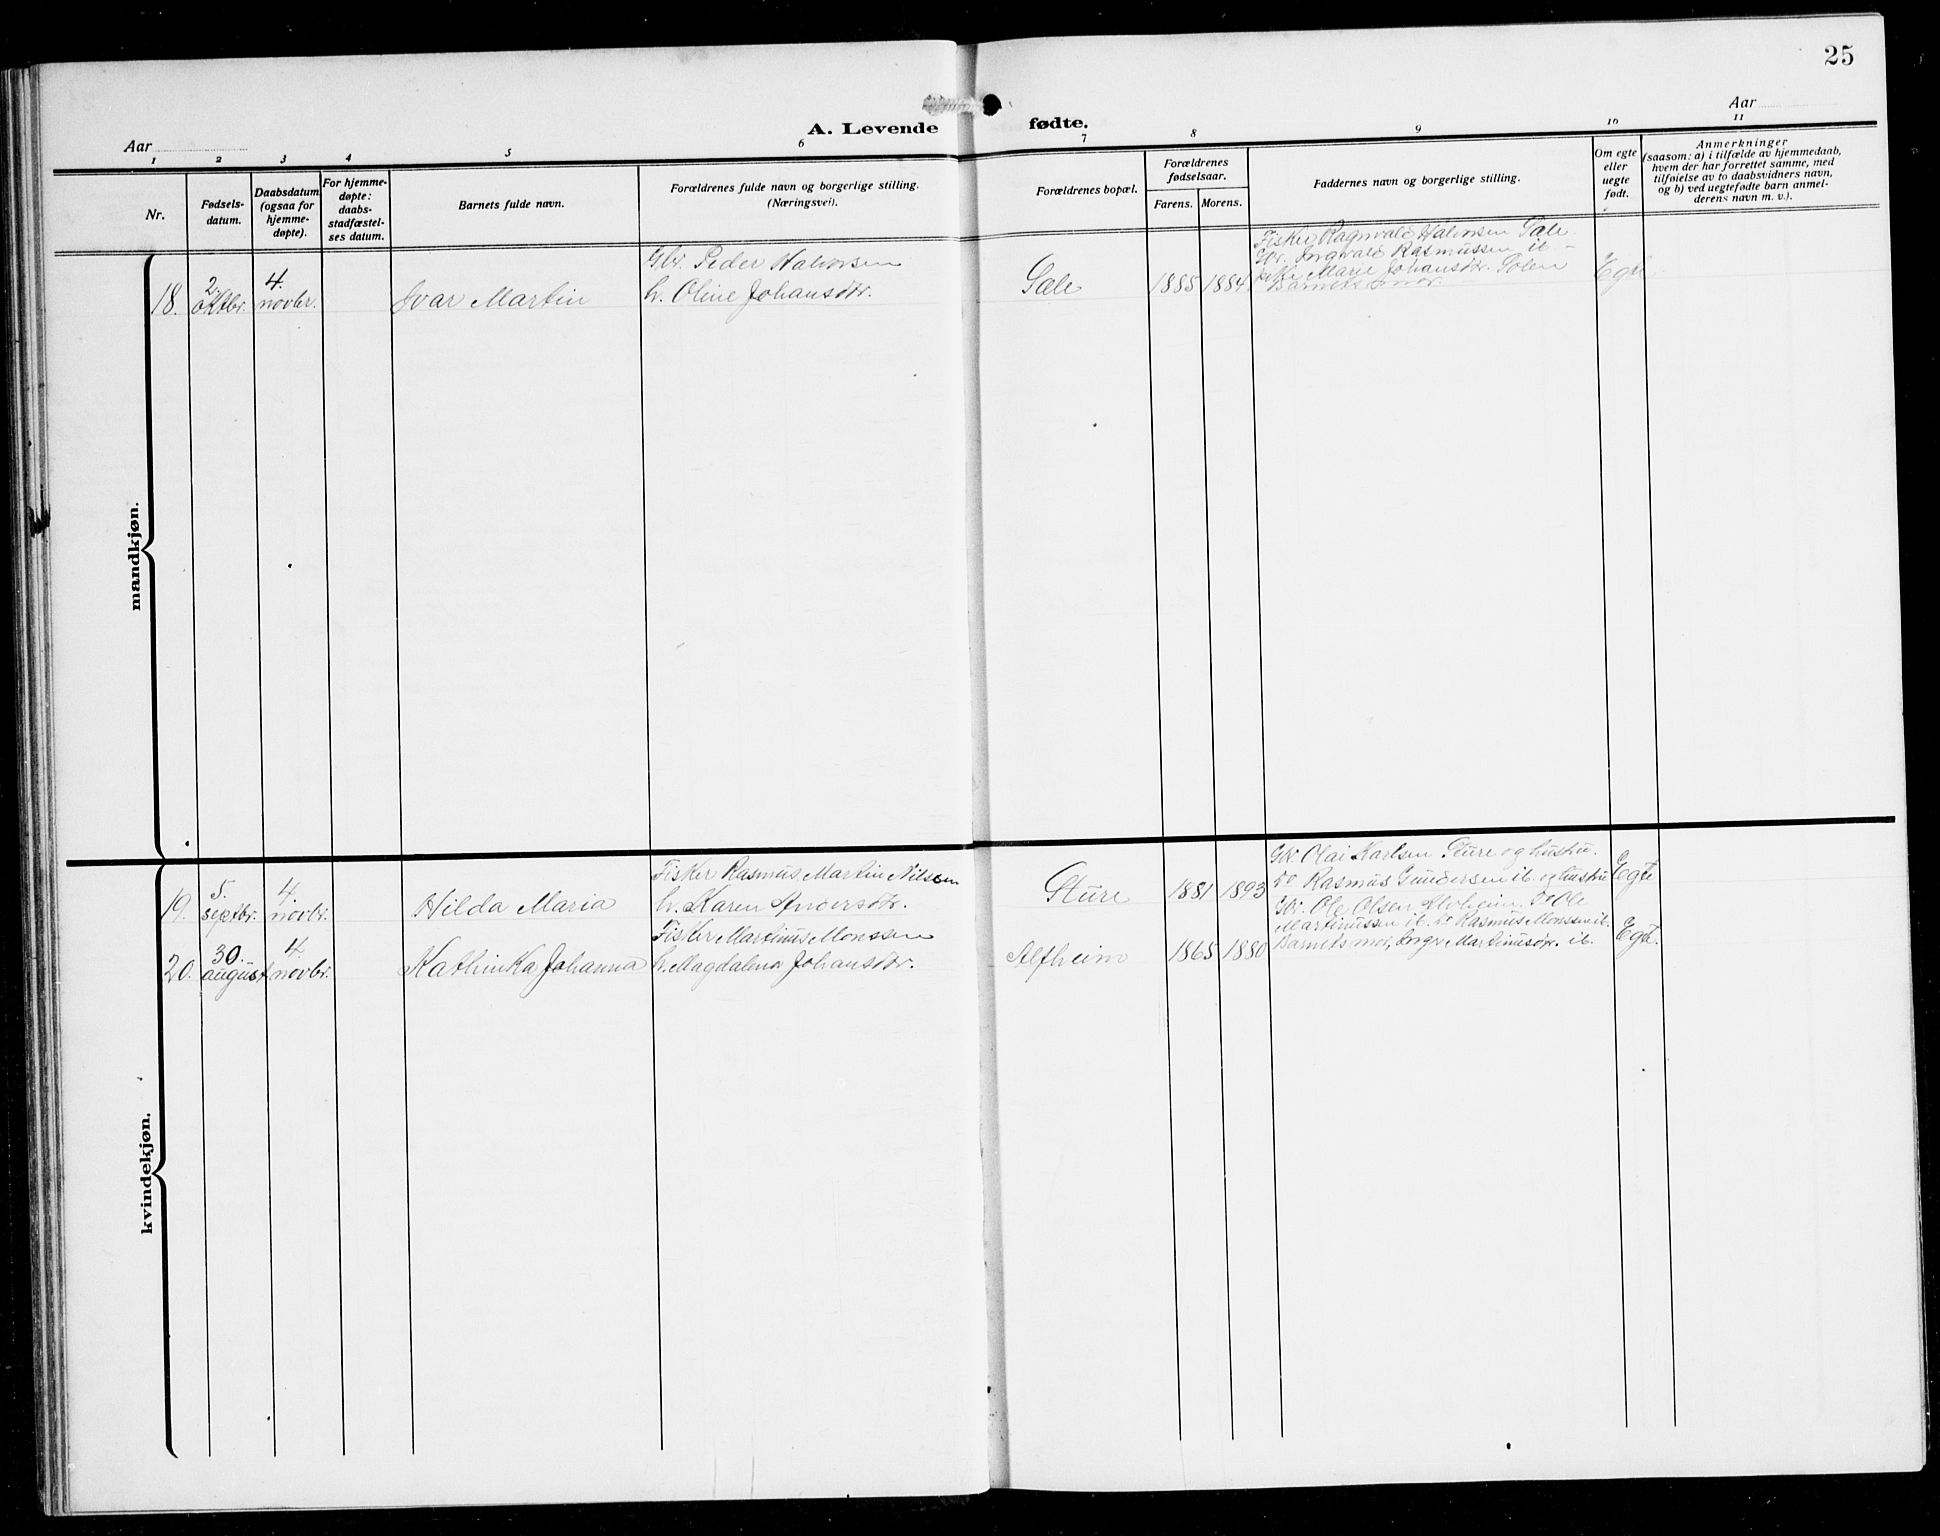 25
Aar
A. Levende fødte.
Aar
1 2 3 4 5 6 7 8 9 10 11
Nr.
Fødsels-
datum.
Daabsdatum
(ogsaa for
hjemme-
døpte).
For hjemme-
døpte:
daabs-
stadfæstel-
ses datum.
Barnets fulde navn.
Forældrenes fulde navn og borgerlige stilling.
(Næringsvei).
Forældrenes bopæl.
Forældrenes
fødselsaar.
Farens. Morens.
Faddernes navn og borgerlige stilling.
Om egte
eller
uegte
født.
Anmerkninger
(saasom: a) i tilfælde av hjemmedaab,
hvem der har forrettet samme, med
tilføielse av to daabsvidners navn,
og b) ved uegtefødte barn anmel-
derens navn m. v.).
mandkjøn.
18.
2.
oktbr.
4.
novbr.
Ivar Martin
Gbr. Peder Halvorsen
h. Oline Johansdtr.
Gale
1885 1884
Fisker Ragnvald Halvorsen Gale
Gbr. Ingvald Rasmussen ib.
Marie Johansdtr. Solen
Barnets mor.
Egte
kvindekjøn.
19.
5.
septbr.
4.
novbr.
Hilda Maria
Fisker Rasmus Martin Nilsen
h. Karen Andersdtr.
Sture
1881 1893
Gbr. Olai Karlsen Sture og hustru.
Do Rasmus Gundersen ib. og hustru
Egte
20.
30.
august
4.
novbr.
Kathinka Johanna
Fisker Martinus Monssen
h. Magdalena Johansdtr.
Alfheim
1865 1880
Gbr. Ole Olsen Alvheim. Do Ole
Martinussen ib. Do Rasmus Monssen ib.
Barnets mor, Inger Martinusdtr. ib.
Egte.